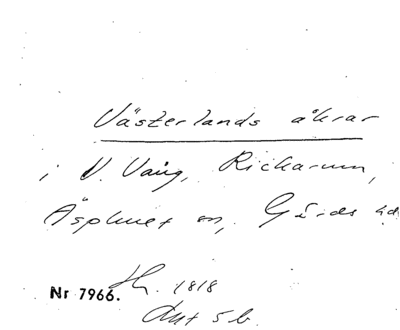 Västerlands åkrar
i V. Vång, Rickarum,
Äsphult sn, Gärds hd
Nr 7966. 1818
Akt 5 b.